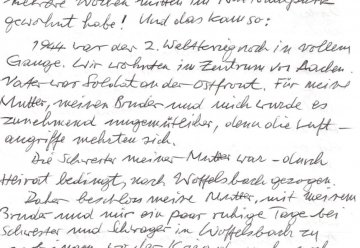 mehrere Wochen mitten im
gewohnt habe! Und das kam so:
1944 war der 2. Weltkrieg noch in vollem
Gange. Wir wohnten im Zentrum von Aachen.
Vater war Soldat an der Ostfront. Für meine
Mutter, meinen Bruder und mich wurde es
zunehmend ungemütlicher, denn die Luft-
angriffe mehrten sich.
Die Schwester meiner Mutter war - durch
Heirat bedingt, nach Woffelsbach gezogen.
Daher beschloss meine Mutter, mit meinem
Bruder und mir ein paar ruhige Tage bei
Schwester und Schwager in Woffelsbach zu